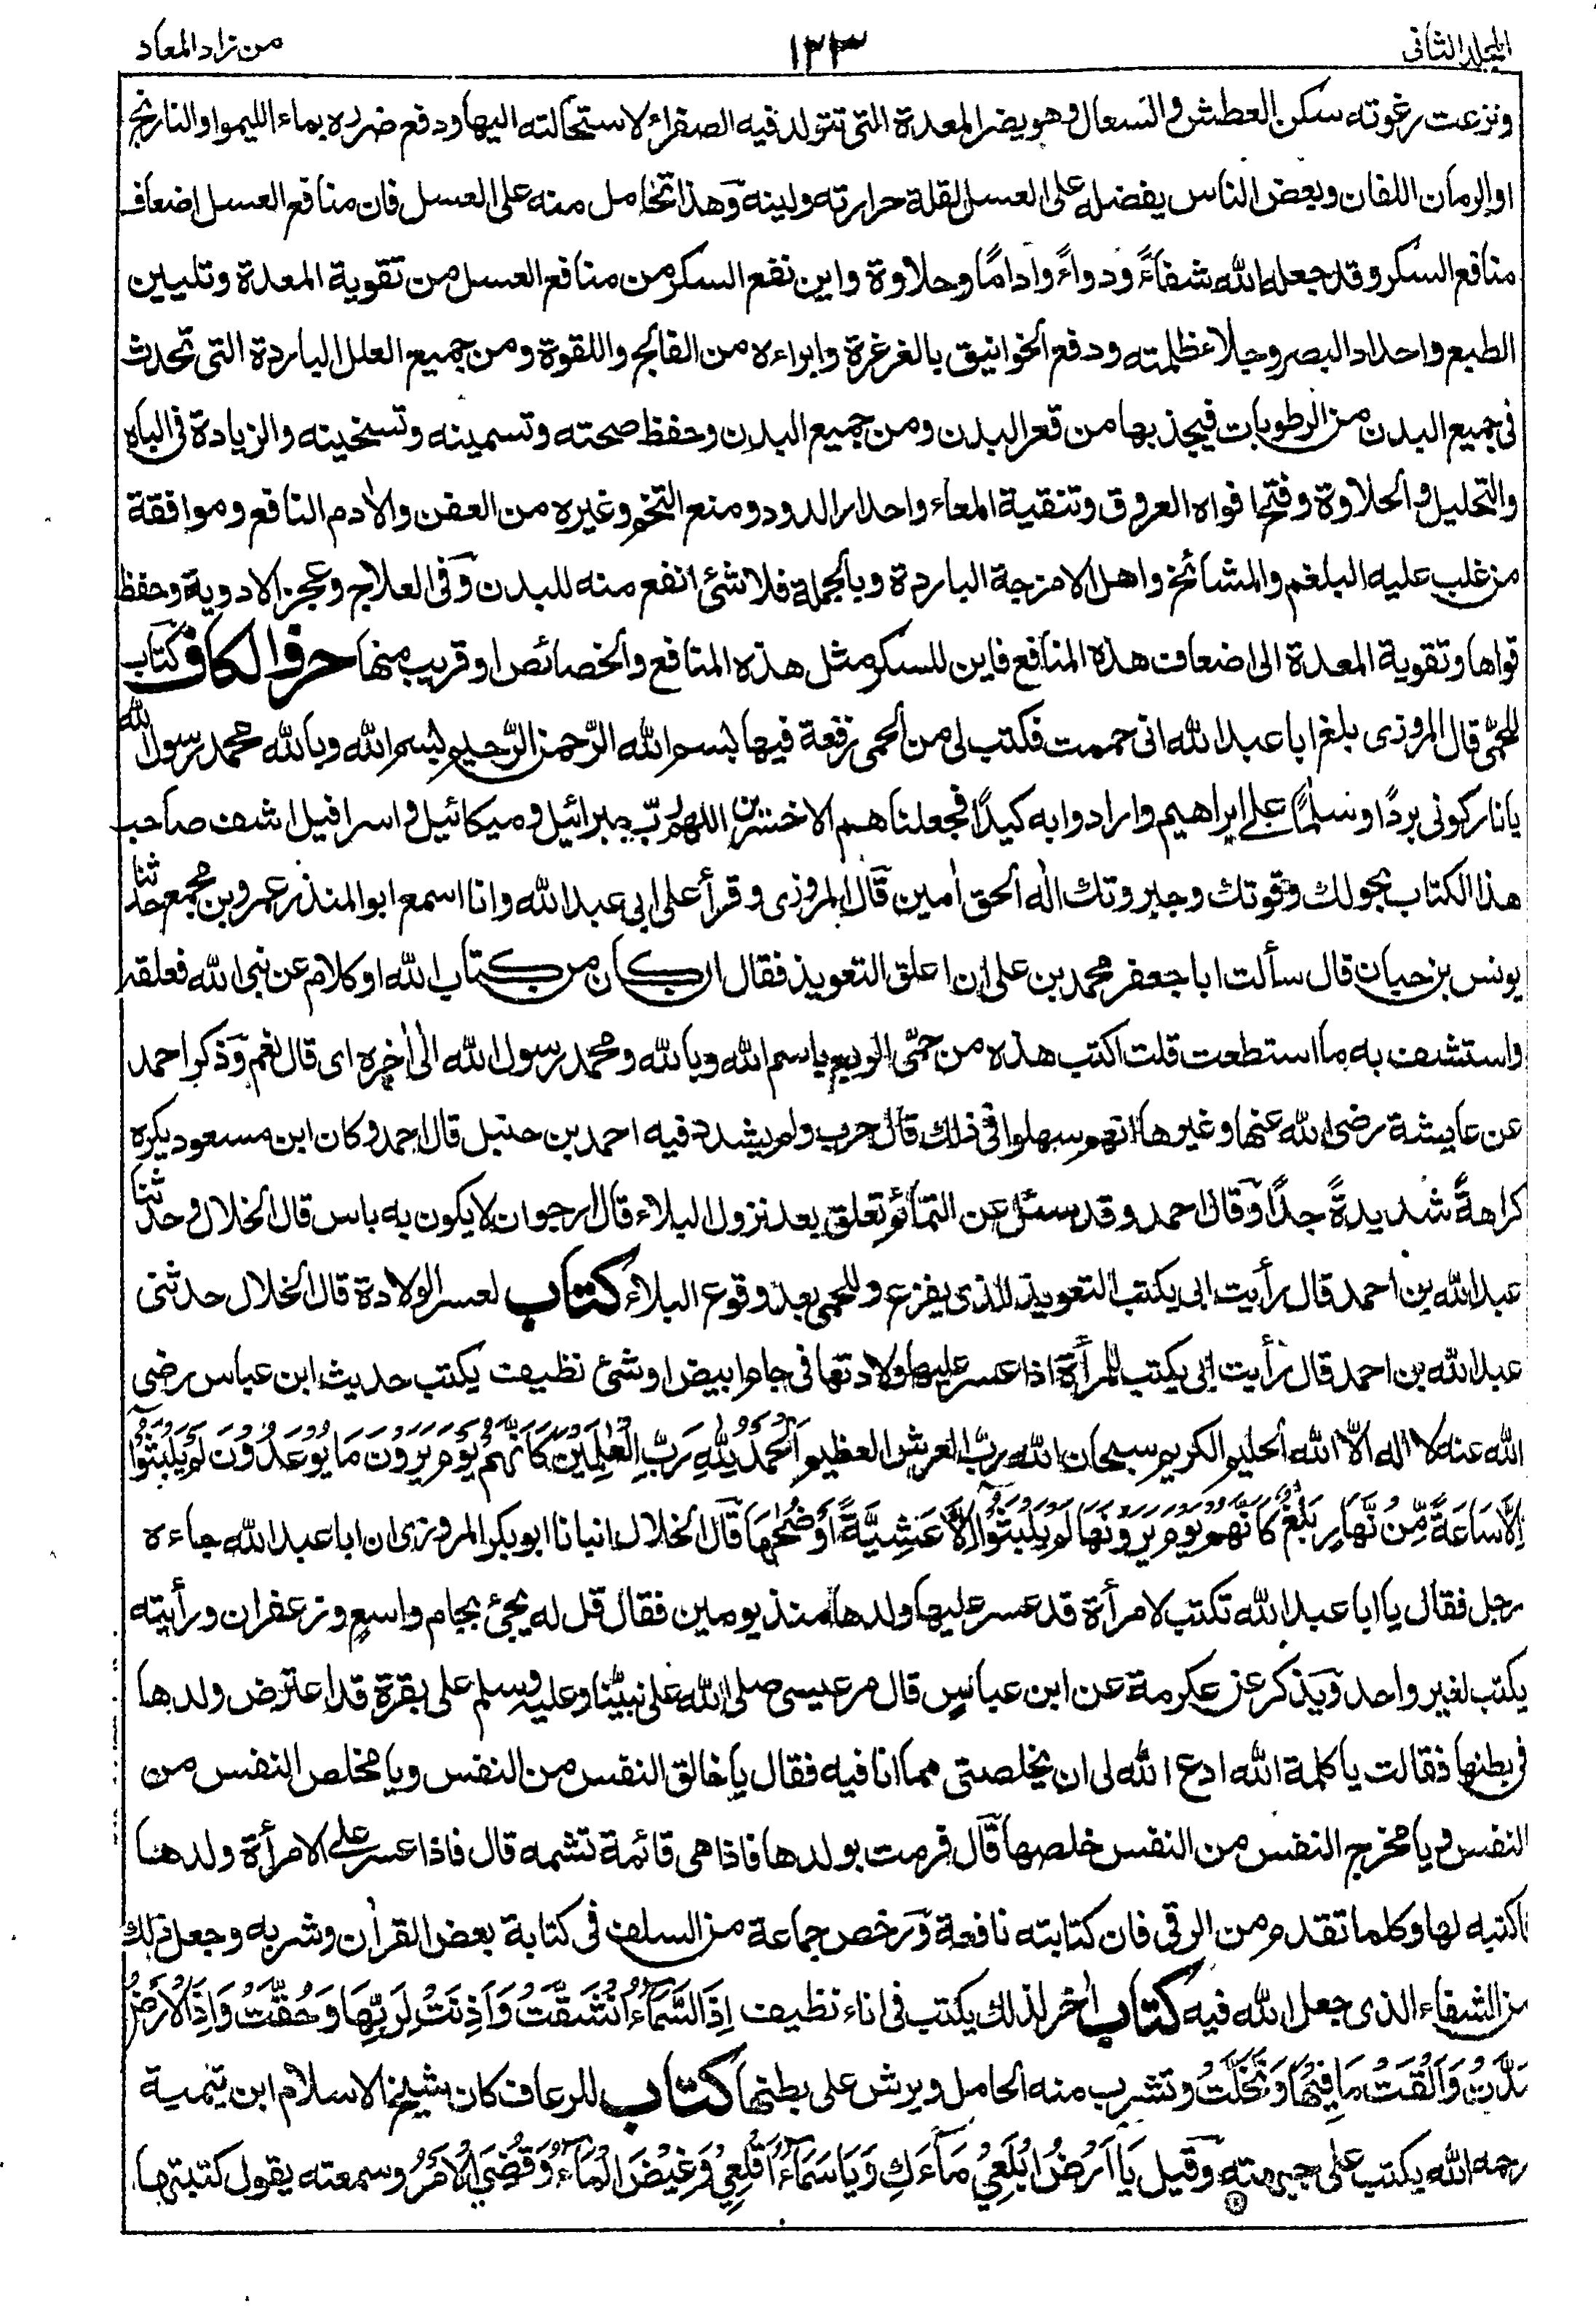 المجلد الثانى
١٣٣
من زاد المعاد
ونزعت رغوته سكن العطش والسعال وهو يضر المعدة التى تتولد فيه الصفراء لاستحالته اليها ودفع ضرره بماء الليموا والنارنج
اوالرمان اللفان وبعض الناس يفضله على العسل لقلة حرارته ولينه وهذا تحامل منه على العسل فان منافع العسل اضعاف
منافع السكر وقد جعله الله شفاءً ودواءً واداماً وحلاوة واين نفع السكر من منافع العسل من تقوية المعدة وتليين
الطبع واحداد البصر وجلاء ظلمته ودفع الخوانيق بالغرغرة وابراءه من الفالج واللقوة ومن جميع العلل الباردة التى تحدث
فى جميع البدن من الرطوبات فيجذبها من قعر البدن ومن جميع البدن وحفظ صحته وتسمينه وتسخينه والزيادة فى الباه
والتحليل والحلاوة وفتح افواه العروق وتنقية المعاء واحدار الدود ومنع التخم وغيره من العفن والادم النافع وموافقة
من غلب عليه البلغم والمشائخ واهل الامزجة الباردة وبالجملة فلا شئ انفع منه للبدن وفى العلاج وعجن الادوية وحفظ
قواها وتقوية المعدة الى اضعاف هذه المنافع فاين للسكر مثل هذه المنافع والخصائص او قريب منها حرف الكاف كتاب
للحمّى قال المروزى بلغ ابا عبد الله انى حممت فكتب لى من الحمى رقعة فيها بسم الله الرّحمن الرّحيم بسم الله وبالله محمد رسول الله
يا نار كونى بردًا وسلٰمًا على ابراهيم وارادوا به كيدًا فجعلناهم الاخسرين اللهم ربّ جبرائيل وميكائيل واسرافيل اشف صاحب
هذا الكتاب بحولك وقوتك وجبروتك اله الحق اٰمين قال المروزى وقرأ على ابى عبد الله وانا اسمع ابو المنذر عمرو بن مجمع حدثنا
يونس بن حبان قال سألت ابا جعفر محمد بن على ان اعلق التعويذ فقال ان كان من كتاب الله او كلام عن نبى الله فعلقه
واستشف به ما استطعت قلت اكتب هذه من حمّى الربع باسم الله وبالله ومحمد رسول الله الى اٰخره اى قال نعم وذكر احمد
عن عايشة رضى الله عنها وغيرها انهم سهلوا فى ذلك قال حرب ولم يشدد فيه احمد بن حنبل قال احمد وكان ابن مسعود يكره
كراهةً شديدةً جدًا وقال احمد وقد سئل عن التمائم تعلق بعد نزول البلاء قال ارجو ان لا يكون به باس قال الخلال وحدثنا
عبد الله بن احمد قال رأيت ابى يكتب التعويذ للذى يفزع وللحمى بعد وقوع البلاء كتاب لعسر الولادة قال الخلال حدثنى
عبد الله بن احمد قال رأيت ابى يكتب للمرأة اذا عسر عليها ولادتها فى جام ابيض او شئ نظيف يكتب حديث ابن عباس رضى
الله عنه لا اله الا الله الحليم الكريم سبحان الله ربّ العرش العظيم اَلْحَمْدُ لِلّٰهِ رَبِّ الْعٰلَمِيْنَ كَاَنَّهُمْ يَوْمَ يَرَوْنَ مَا يُوْعَدُوْنَ لَمْ يَلْبَثُوْا
اِلَّا سَاعَةً مِّنْ نَّهَارٍ بَلٰغٌ كَاَنَّهُمْ يَوْمَ يَرَوْنَهَا لَمْ يَلْبَثُوْا اِلَّا عَشِيَّةً اَوْ ضُحٰهَا قال الخلال انبانا ابو بكر المروزى ان ابا عبد الله جاءه
رجل فقال يا ابا عبد الله تكتب لامرأة قد عسر عليها ولدها منذ يومين فقال قل له يجئ بجام واسع وزعفران ورأيته
يكتب لغير واحد ويذكر عن عكرمة عن ابن عباس قال مر عيسى صلى الله على نبيّنا وعليه وسلم على بقرة قد اعترض ولدها
فى بطنها فقالت يا كلمة الله ادع الله لى ان يخلصنى مما انا فيه فقال يا خالق النفس من النفس ويا مخلص النفس من
النفس ويا مخرج النفس من النفس خلصها قال فرمت بولدها فاذا هى قائمة تشمه قال فاذا عسر على الامرأة ولدها
فاكتبه لها وكلما تقدم من الرقى فان كتابته نافعة ورخص جماعة من السلف فى كتابة بعض القراٰن وشربه وجعل ذلك
من الشفاء الذى جعل الله فيه كتاب اٰخر لذلك يكتب فى اناء نظيف اِذَا السَّمَآءُ انْشَقَّتْ وَاَذِنَتْ لِرَبِّهَا وَحُقَّتْ وَاِذَا الْاَرْضُ
مُدَّتْ وَاَلْقَتْ مَا فِيْهَا وَتَخَلَّتْ وتشرب منه الحامل ويرش على بطنها كتاب للرعاف كان شيخ الاسلام ابن تيمية
رحمه الله يكتب على جبهته وَقِيْلَ يَا اَرْضُ ابْلَعِيْ مَآءَكِ وَيَا سَمَآءُ اَقْلِعِيْ وَغِيْضَ الْمَآءُ وَقُضِيَ الْاَمْرُ وسمعته يقول كتبتها